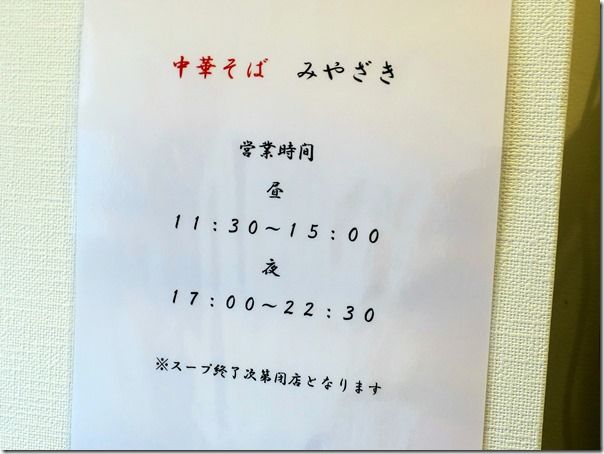 中華そば　みやざき
営業時間
昼
１１：３０～１５：００
夜
１７：００～２２：３０
※スープ終了次第閉店となります